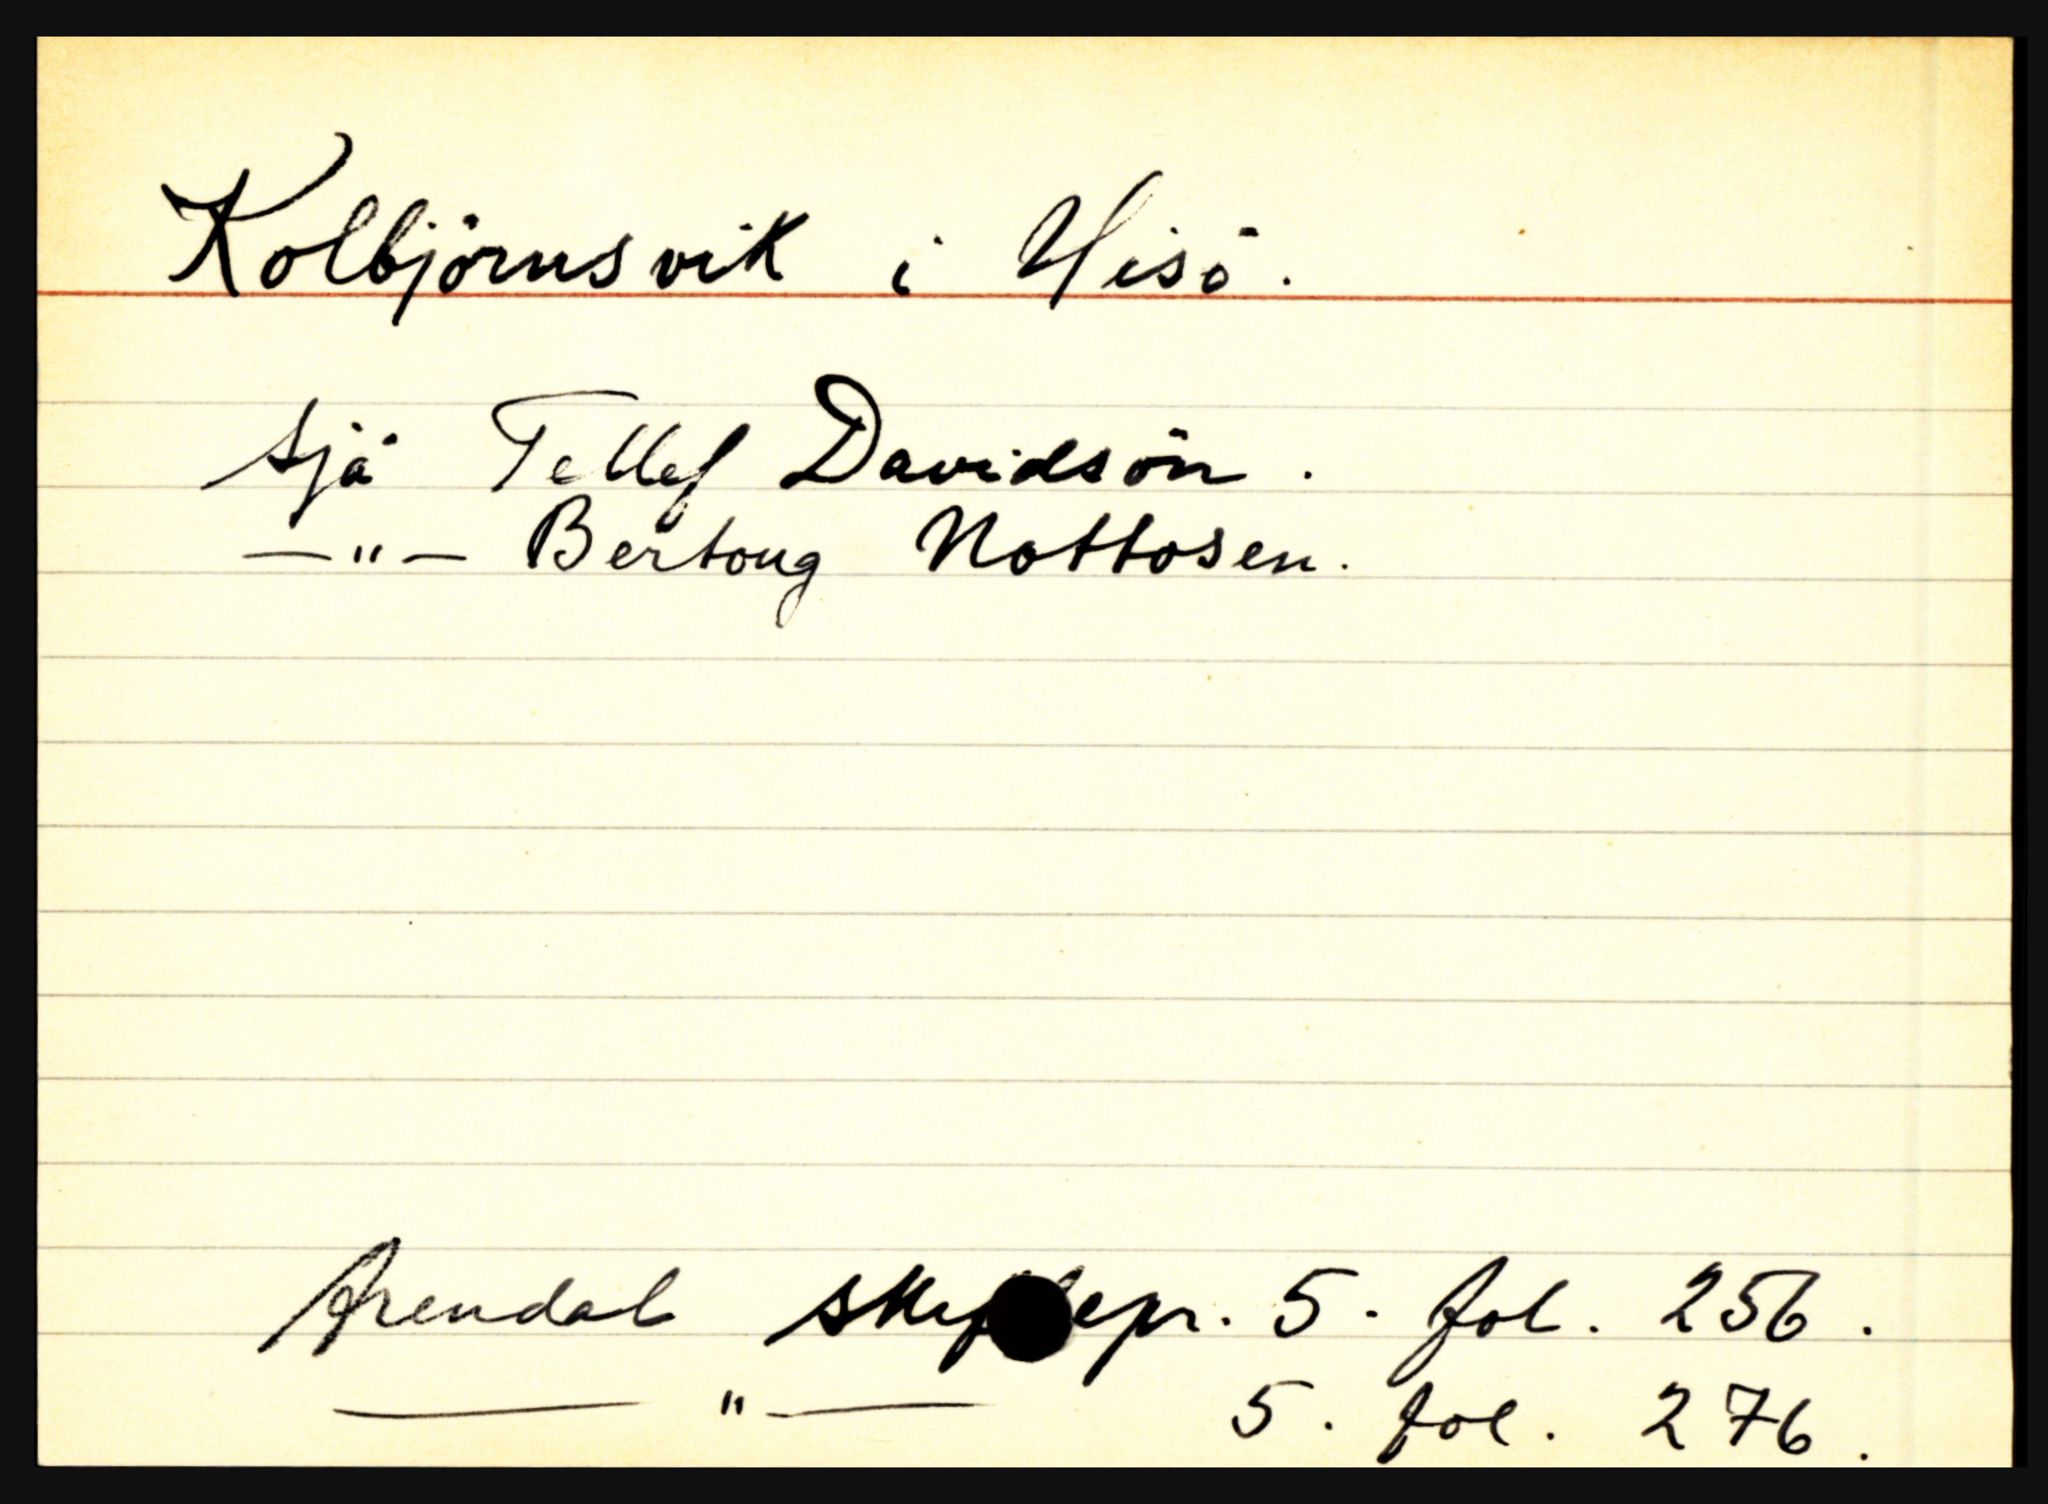 Kolbjörnsvik i Hisö.
sjå Tellef Davidsön.
—"— Bertoug Nottosen.
Arendal 5. fol. 256.
—"— 5. fol. 276.